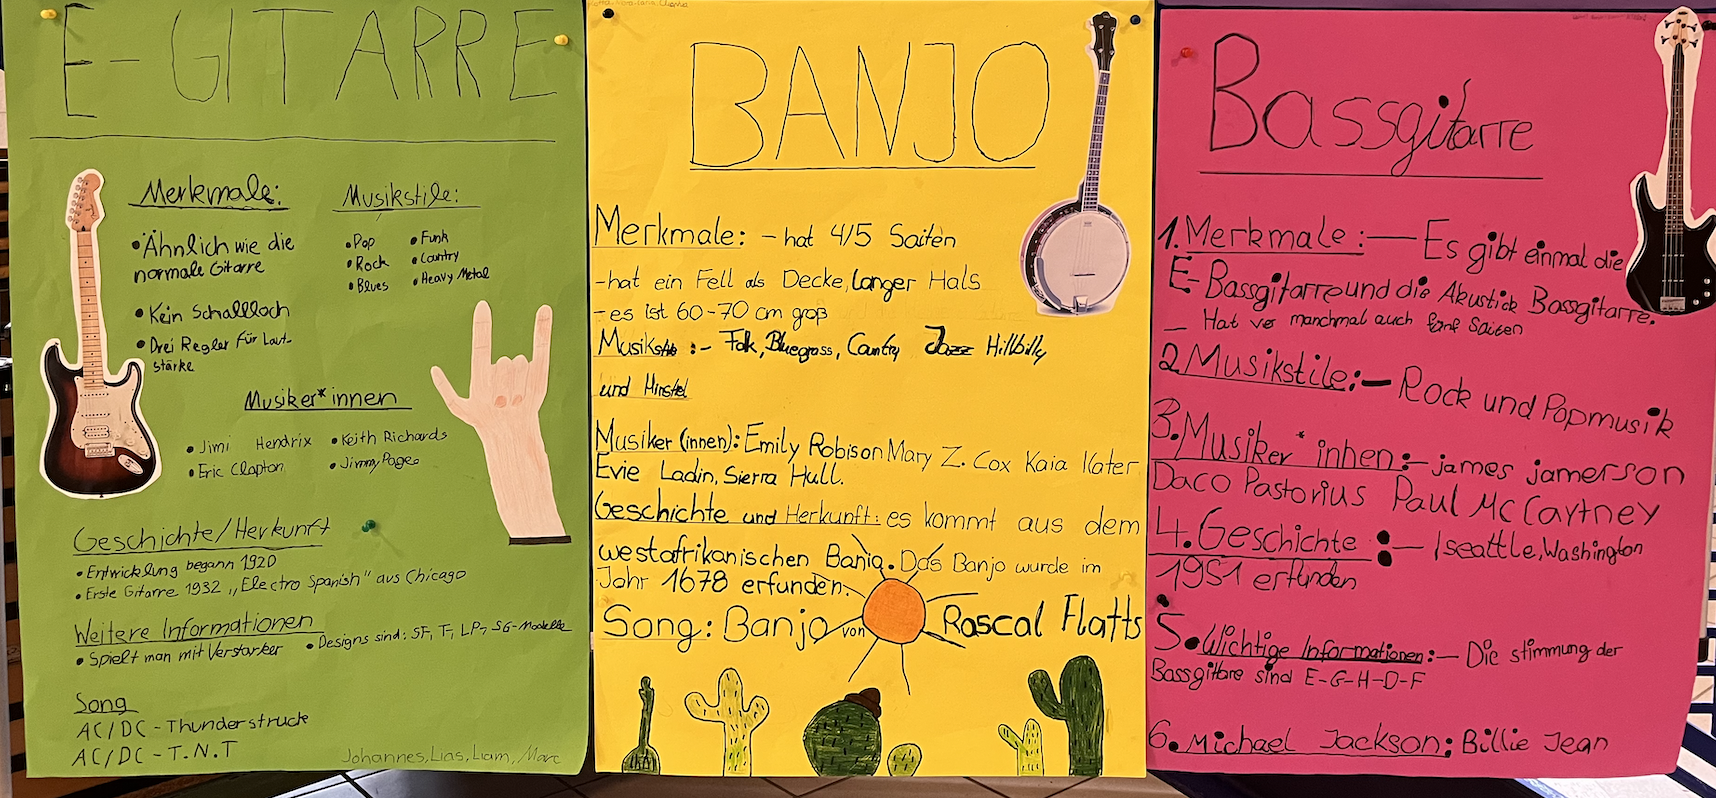 E-GITARRE
Merkmale:
• Ähnlich wie die
normale Gitarre
• Kein Schallloch
• Drei Regler für Laut-
stärke
Musikstile:
• Pop
• Rock
• Blues
• Funk
• Country
• Heavy Metal
Musiker*innen
• Jimi Hendrix
• Eric Clapton
• Keith Richards
• Jimmy Page
Geschichte/Herkunft
• Entwicklung begann 1920
• Erste Gitarre 1932 „Electro Spanish" aus Chicago
Weitere Informationen
• Spielt man mit Verstärker
• Designs sind: SF, T, LP, SG-Modelle
Song
AC/DC - Thunderstruck
AC/DC - T.N.T
Johannes, Lias, Liam, Marc
BANJO
Merkmale: - hat 4/5 Saiten
- hat ein Fell als Decke, langer Hals
- es ist 60-70 cm groß
Musikstile: - Folk, Bluegrass, Country Jazz Hillbilly
und Minstel
Musiker (innen): Emily Robison Mary Z. Cox Kaia Kater
Evie Ladin, Sierra Hull.
Geschichte und Herkunft: es kommt aus dem
westafrikanischen Bania. Das Banjo wurde im
Jahr 1678 erfunden.
Song: Banjo von Rascal Flatts
Bassgitarre
1. Merkmale: - Es gibt einmal die
E-Bassgitarre und die Akustick Bassgitarre.
- Hat manchmal auch fünf Saiten
2. Musikstile: - Rock und Popmusik
3. Musiker*innen: - james jamerson
Daco Pastorius Paul McCartney
4. Geschichte: - Iseattle, Washington
1951 erfunden
5. Wichtige Informationen: - Die stimmung der
Bassgitare sind E-G-H-D-F
6. Michael Jackson: Billie Jean